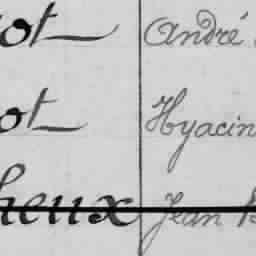 ot André
ot Hyacin
heux Jean B